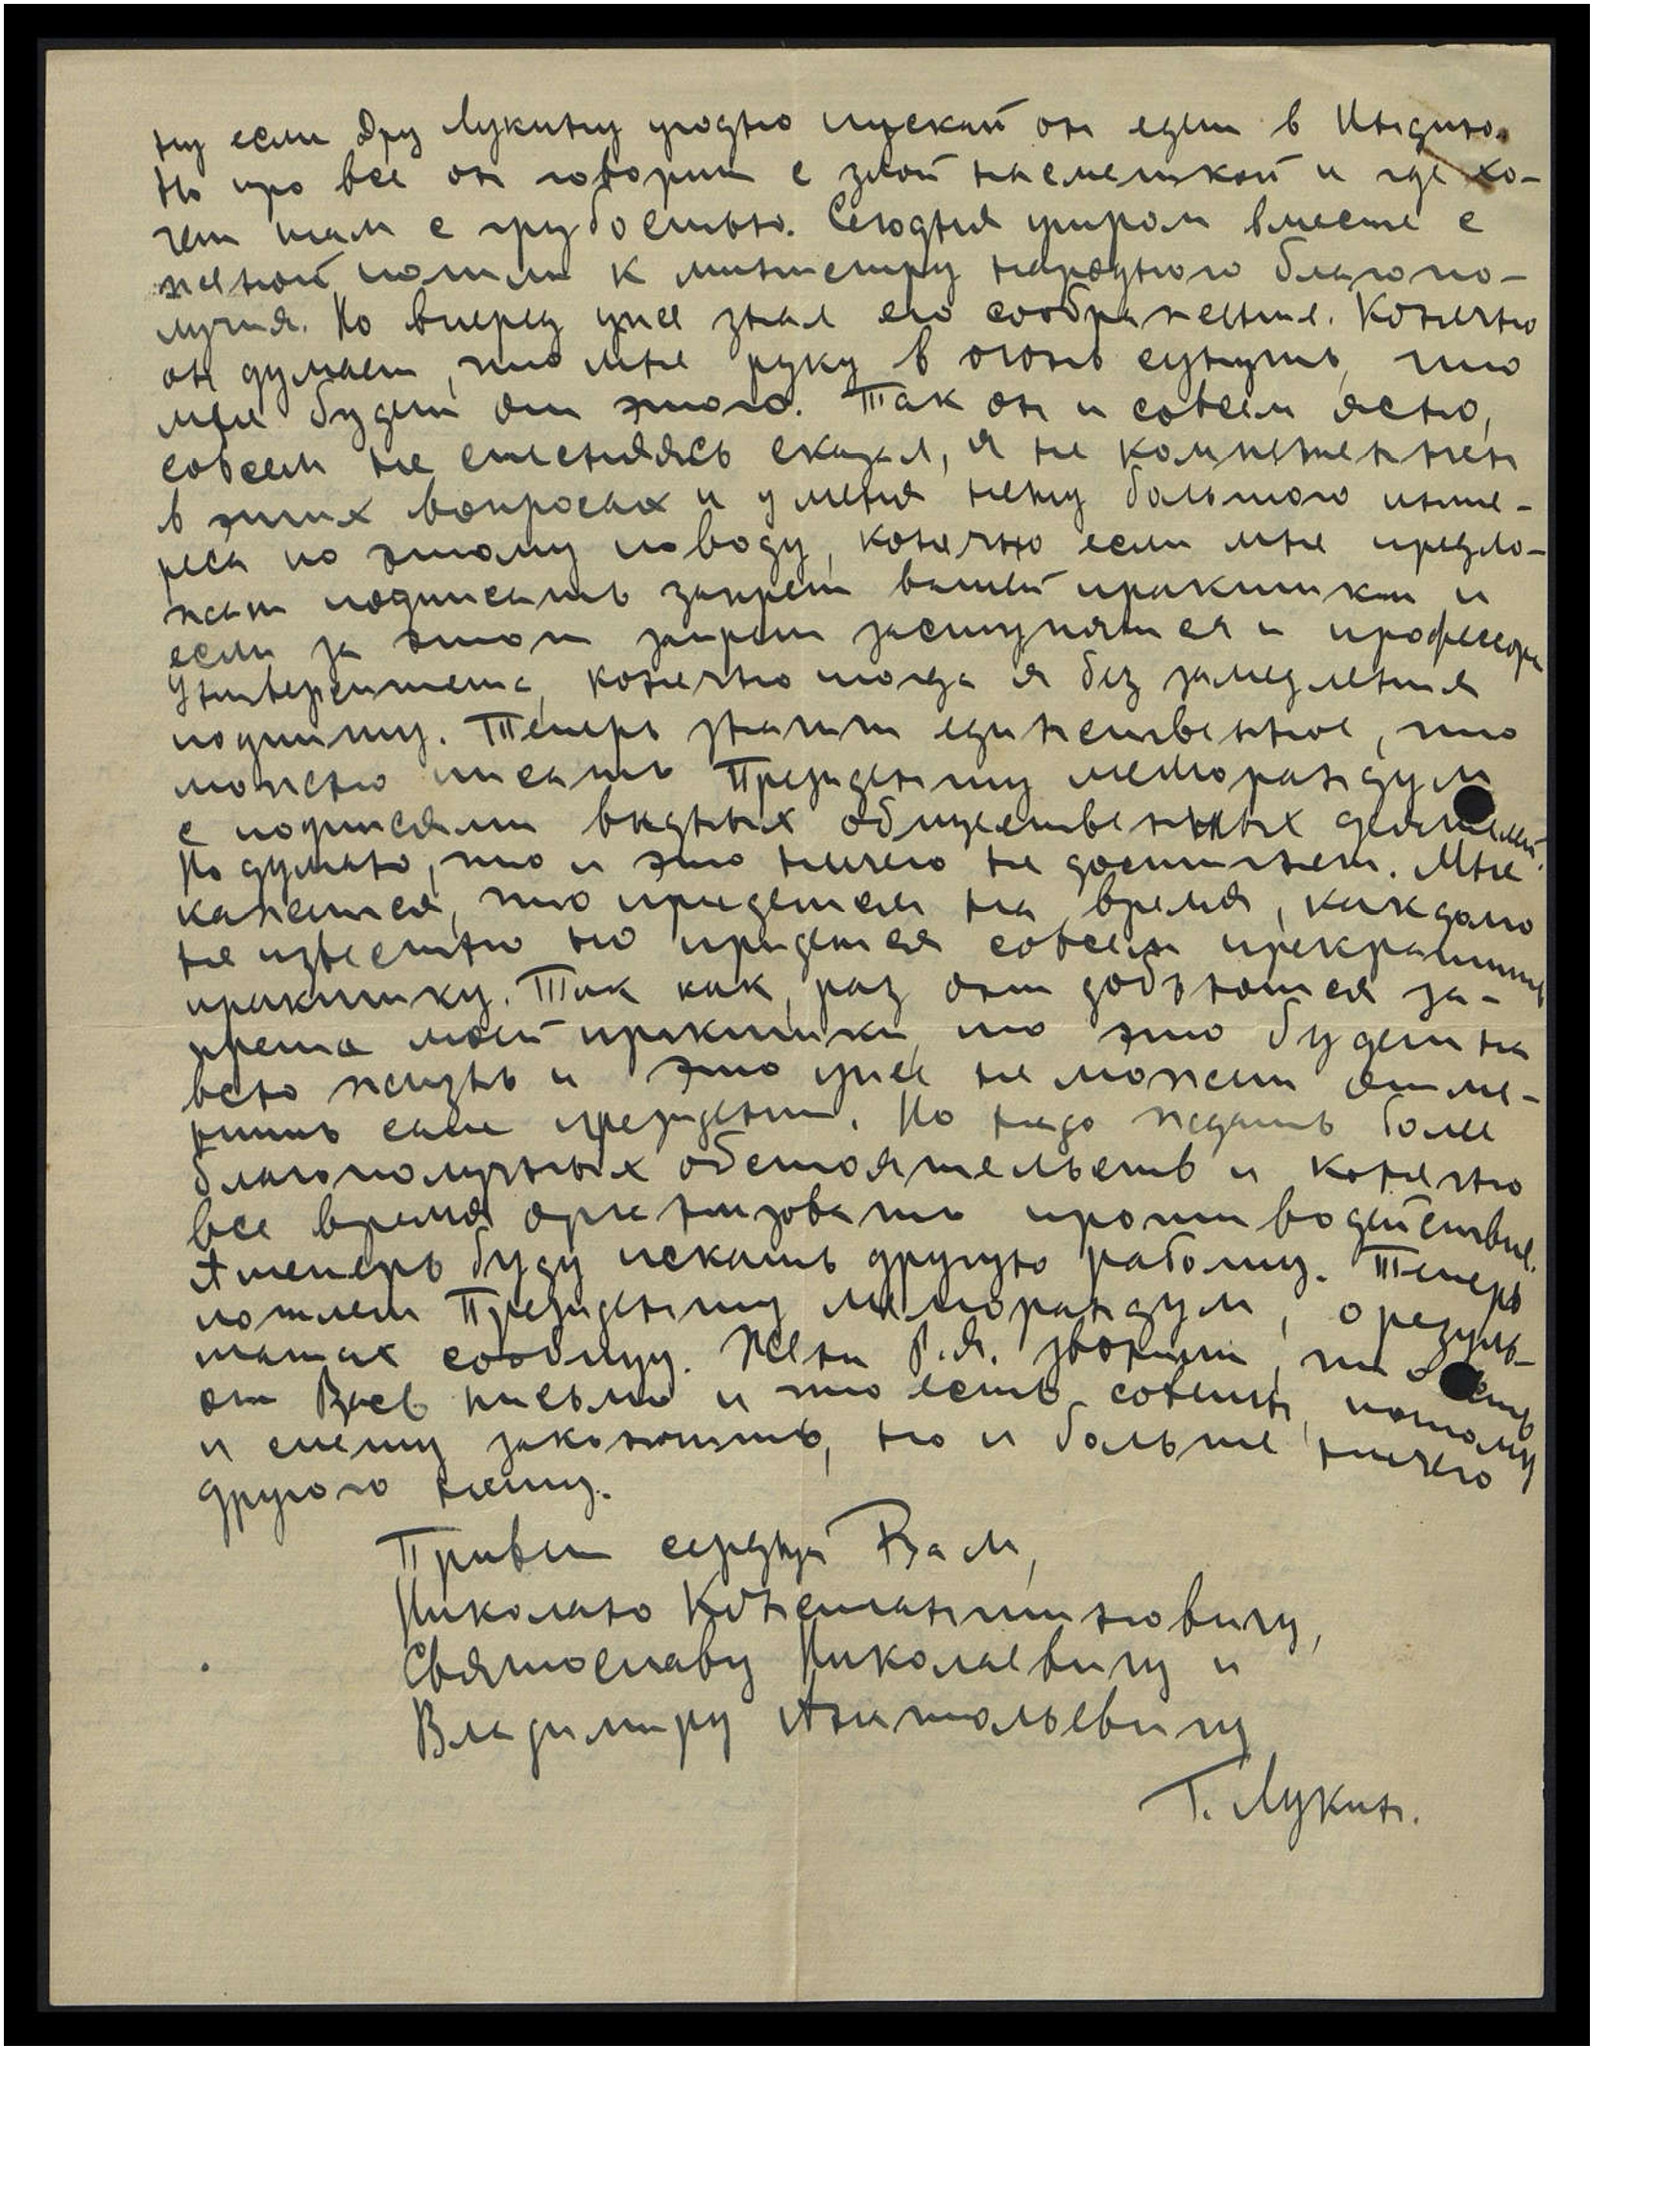 ну если Дру Лукину угодно пускай он едет в Индию.
Но про все он говорит с злой насмешкой и где хо-
чет там с грубостью. Сегодня утром вместе с
женой пошли к министру народного благопо-
лучия. Но вперед уже знал его соображения. Конечно
он думает, что мне руку в огонь сунуть, что
мне будет от этого. Так он и совсем ясно,
совсем не стесняясь сказал, я не компетентен
в этих вопросах и у меня нету большого инте-
реса по этому поводу, конечно если мне предло-
жат подписать запрет вашей практики и
если за этот запрет заступятся и профессора
Университета, конечно тогда я без замедления
подпишу. Теперь значит единственное, что
можно писать Президенту меморандум
с подписями видных общественных деятелей.
Но думаю, что и это ничего не достигнет. Мне
кажется, что придется на время, как долго
не известно но придется совсем прекратить
практику. Так как, раз они добьются за-
прета моей практики, то это будет на
всю жизнь и это уже не может отме-
нить сам президент. Но надо ждать более
благополучных обстоятельств и конечно
все время организовать противодействие.
А теперь буду искать другую работу. Теперь
пошлем Президенту меморандум, о резуль-
татах сообщу. Жена Р.Я. звонит, что есть
от Вас письмо и что есть советы, потому
и спешу закончить, но и больше ничего
другого нету.
Привет сердца Вам,
Николаю Константиновичу,
Святославу Николаевичу и
Владимиру Анатольевичу
Г. Лукин.